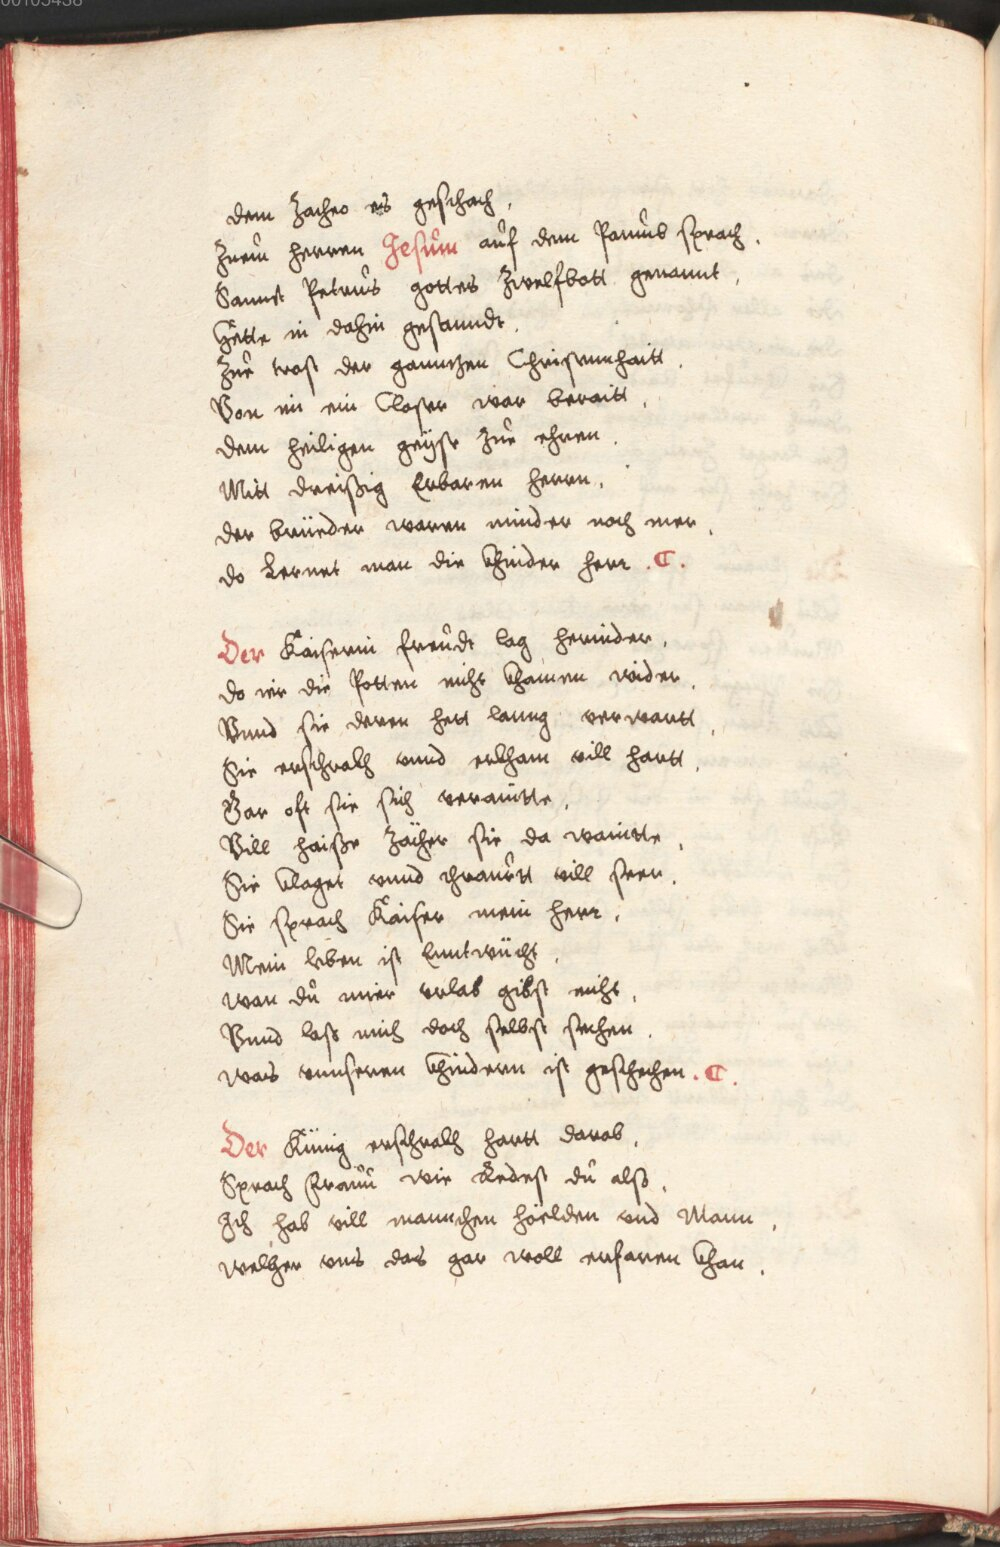 00105438
dem Zacheo es geschach,
Zuem herren Jesum auf dem Paumb sprach.
Sannct Petrus gottes Zwelfbott genannt,
Hette in dahin gesanndt.
Zue trost der ganntzen Christennhaitt.
Von im ein Closter war beraitt,
dem heiligen geÿst Zue ehren.
Mitt dreißig Erbaren herrn,
der brüeder waren minder noch mer,
do Lernet man die khinder herr. C.
Der Kaiserin freudt lag herinder,
do ier die Potten nicht khamen wider.
Vnnd sie deren hett lanng verwartt,
Sie erschrakh vnnd erkham vill hartt.
Gar oft sie sich verainte,
Vill haiße Zächer sie da wainte,
Sie klaget vnnd thraurtt vill seer.
Sie sprach Kaiser mein herr,
Mein leben ist Enntwücht,
wan du mier vrlab gibst nicht,
Vnnd laß mich doch selbst sechen.
was vnnseren khindern ist geschechen. C.
Der Künig erschrakh hartt darab,
Sprach Frauu wie Redest du alß.
Ich hab vill mannchen hörlden vnd Mann,
welcher vns das gar woll erfaren khan.